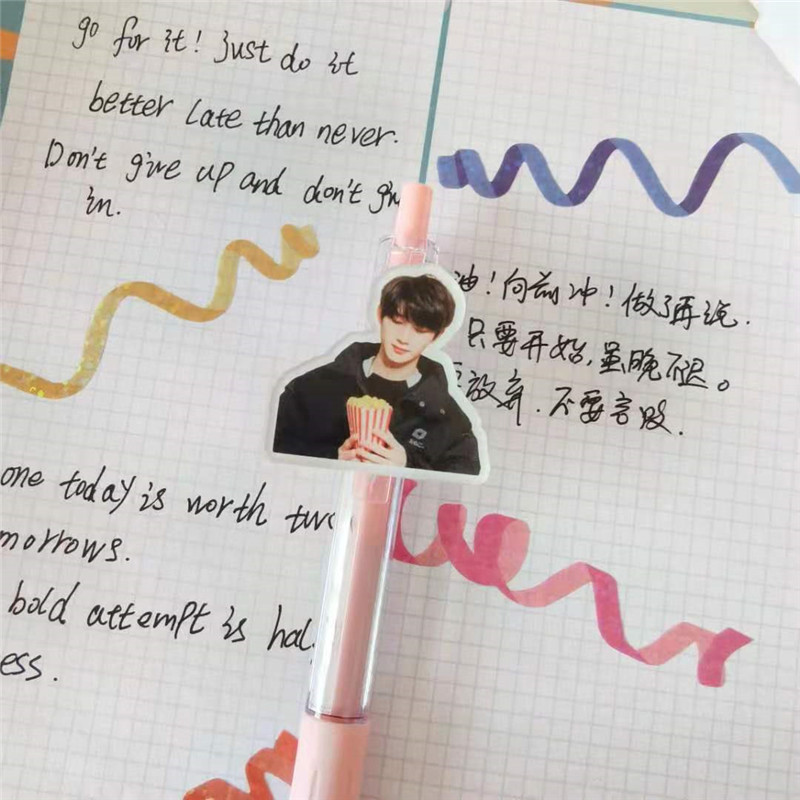 go for it! Just do it
better late than never.
Don't give up and don't giv
in.
油!向前冲!做了再说.
只要开始,虽晚不迟。
放弃.不要言败.
one today is worth two
morrows.
bold attempt is hal
ess.